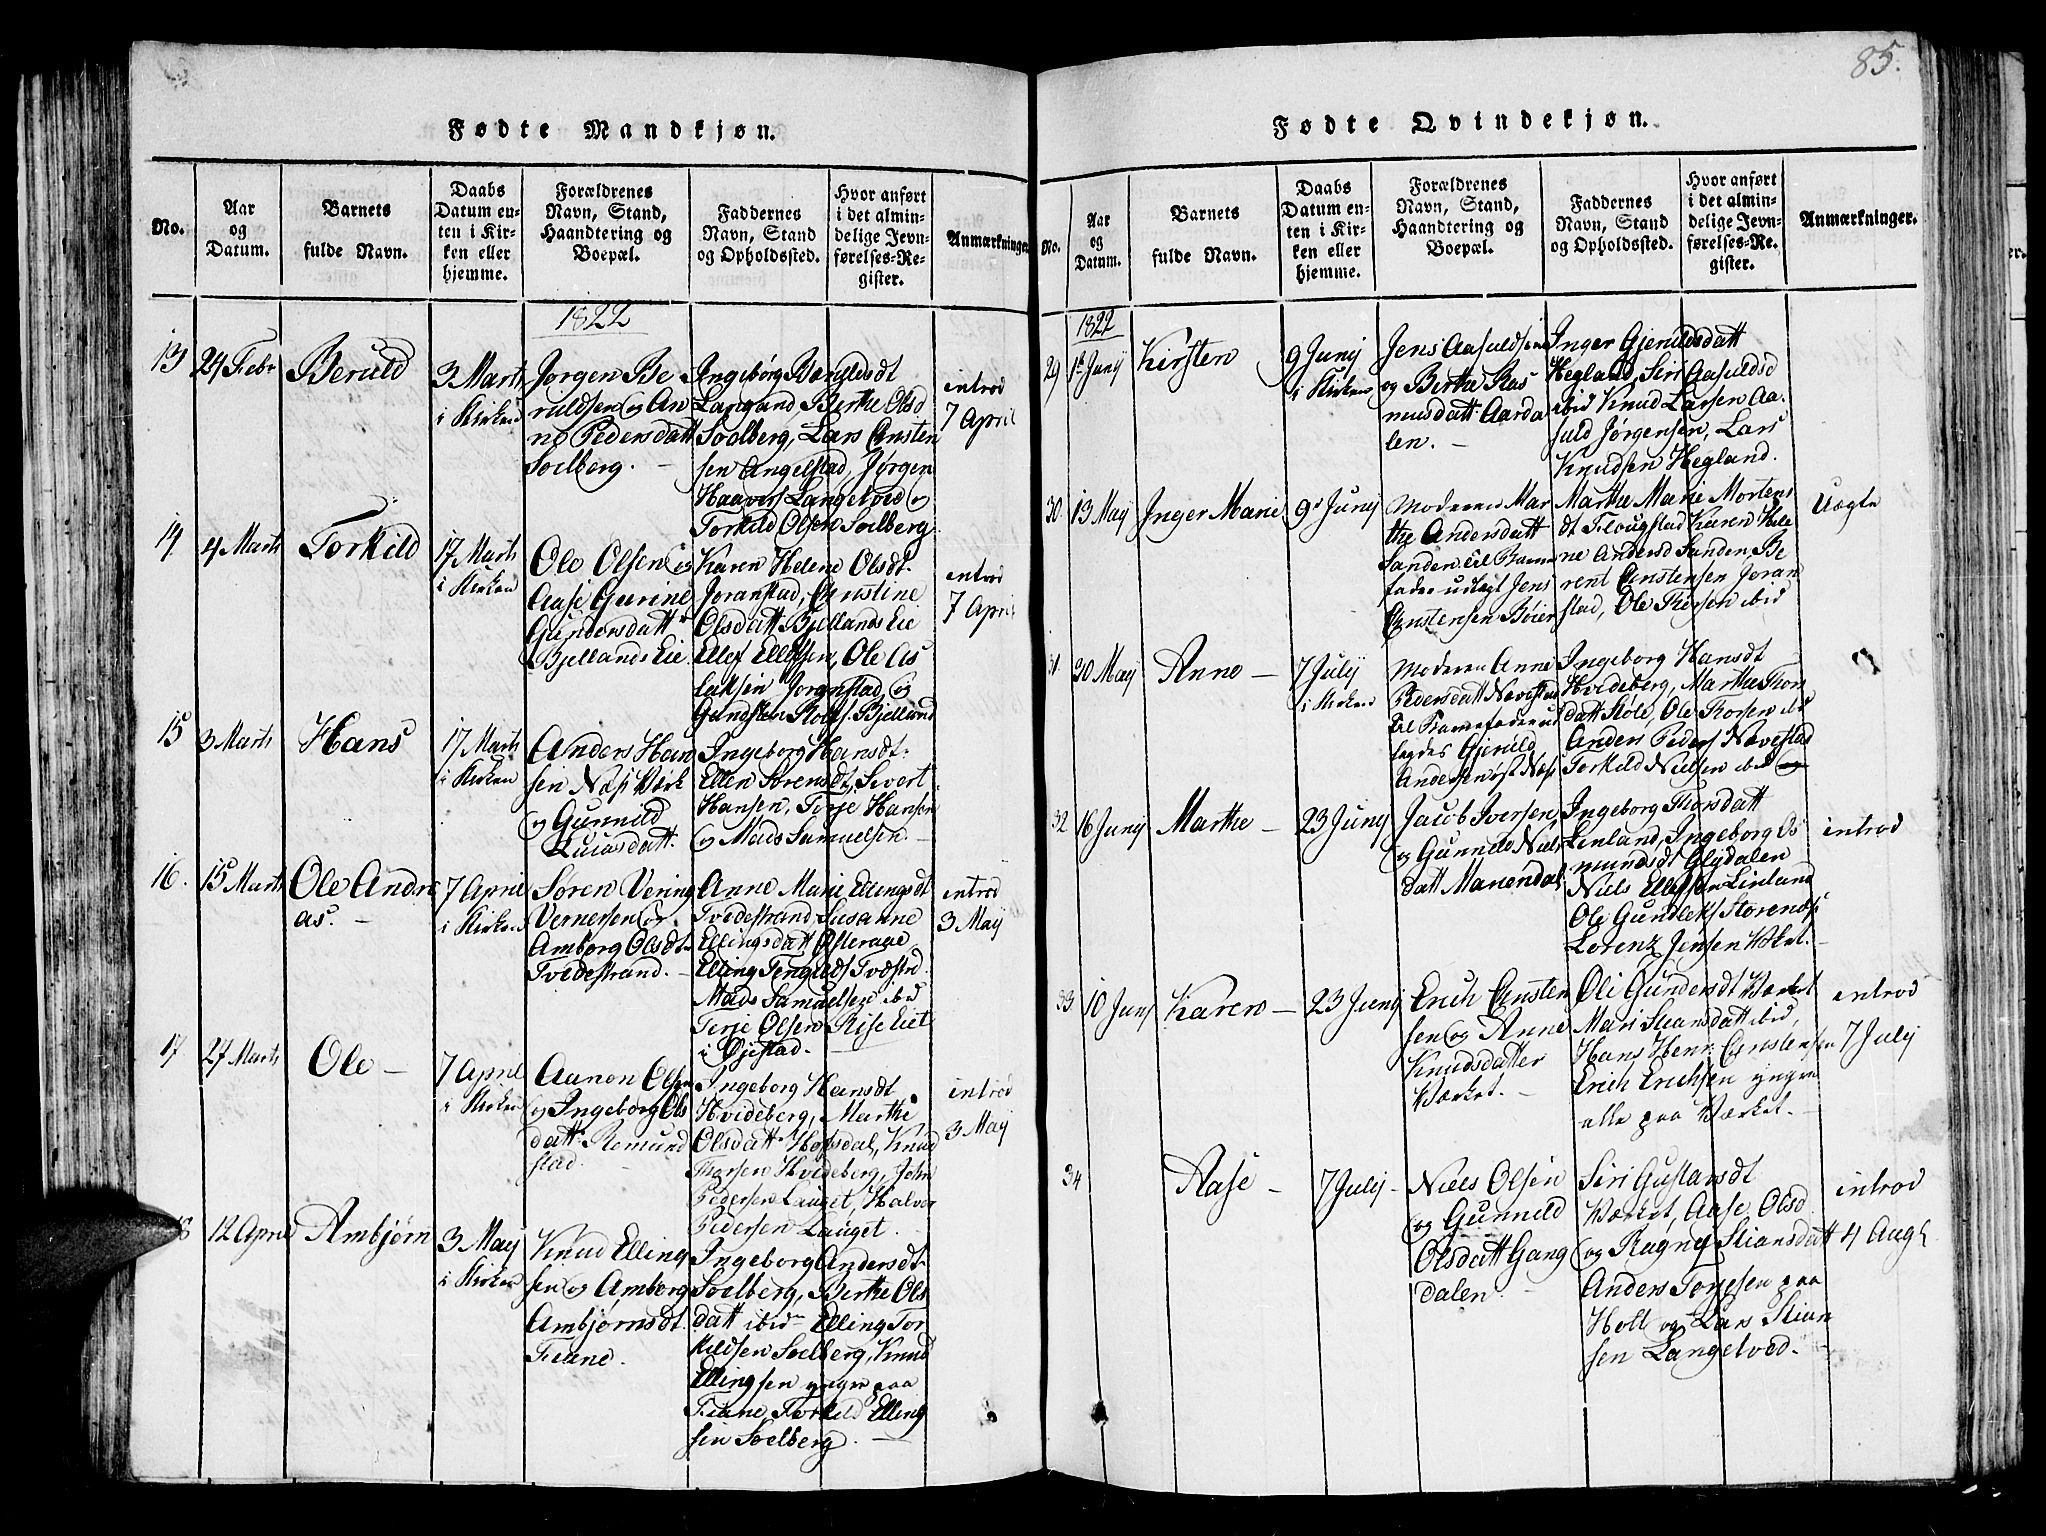 85.
Fødte Mandkjøn.
No.
Aar
og
Datum.
Barnets
fulde Navn.
Daabs
Datum en-
ten i Kir-
ken eller
hjemme.
Forældrenes
Navn, Stand,
Haandtering og
Boepæl.
Faddernes
Navn, Stand
og Opholdssted.
Hvor anført
i det almin-
delige Jevn-
førelses-Re-
gister.
Anmærkninger
1822
13
24 Febr
Beruld
3 Marts
i Kirken
Jørgen Be
ruldsen og An
ne Pedersdatt
Soelberg. -
Ingebørg
Langand Berthe Olsd
Soelberg, Lars Ansten
sen Angelstad, Jørgen
Haavors Langelved og
Torkild Olsen Soelberg
introd
7 April
14
4 Marts
Torkild
17 Marts
i Kirken
Ole Olsen og
Aase Gurine
Gundersdatt
Bjellands Eie
Karen Helene Olsdt.
Joranstad, Christine
Olsdatt Bjellands Eie
Ellef Ellefsen, Ole As
laksen Joranstad og
Gundsten Rolfs. Bjelland
introd
7 April
15
3 Marts
Hans
17 Marts
i Kirken
Anders Han
sen Næs Værk
og Gunnild
Lucasdatt.
Ingeborg Hansdt.
Ellen Sørensdt, Sivert
Hansen, Terje Hansen
og Mads Samuelsen. -
16.
15 Marts
Ole Andre
as. -
7 April
i Kirken
Søren Vering
Vernersen og
Amborg Olsdt.
Tvedestrand. -
Anne Marie Ellingsdt
Tvedestrand Susanne
Ellingsdatt Osterage
Elling Tengelds Tvdstrd.
Mads Samuelsen ibid
Terje Olsen Rise Eiet
i Øjestad.
introd
3 May
17
27 Marts
Ole -
7 April
i Kirken
Aanon Olsen
og Ingeborg Ols
datt. Romund
stad. -
Ingeborg Hansdt
Hvideberg, Marthe
Olsdatt Hofsdal, Knud
Thorsen Hvideberg, John
Pedersen Lauget, Halvor
Pedersen Lauget.
introd
3 May
18
12 April
Ambjørn
3 May
i Kirken
Knud Elling
sen og Amborg
Ambjørnsdt.
Fiane.
Ingeborg Andersdt.
Soelberg, Berthe Ols
datt ibid Elling Tor
kildsen Soelberg, Knud
Ellingsen yngre paa
Fiane, Torkild Elling
sen Soelberg. -
Fødte Qvindekjøn.
No.
Aar
og
Datum.
Barnets
fulde Navn.
Daabs
Datum en-
ten i Kir-
ken eller
hjemme.
Forældrenes
Navn, Stand,
Haandtering og
Boepæl.
Faddernes
Navn, Stand
og Opholdssted.
Hvor anført
i det almin-
delige Jevn-
førelses-Re-
gister.
Anmærkninger.
1822
29
1 Junij
Kirsten
9 Junij
i Kirken
Jens Aasuldsen
og Berthe Ras
musdatt. Aarda
len. -
Inger Gjeruldsdatt
Hegland, Siri Aasuldsd
ibid Knud Larsen Aa-
suld Jørgensen, Lars
Knudsen Hegland.
30
13 May
Inger Marie
9 Junij
Moderen Mar
the Andersdatt
Sanden til Barne
fader udlagt Jens
Christensen Bøier
Marthe Marie Mortens
dt Flougstad Karen Hele
ne Andersd Sanden, Be
rent Christensen Joran
stad, Ole Thorsen ibid
Uægte
31
30 May
Anne -
7 Julij
i Kirken
Moderen Anne
Pedersdatt Nævestad
til Barnefader ud
lagdes Gjeruld
Andersen øst Næs
Ingeborg Hansdt
Hvideberg, Marthe Thors
datt Støle, Ole Thorsen ibid
Anders Peders Nævestad
Torkild Nielsen ibid
32
16 Junij
Marthe -
23 Junij
Jacob Iversen
og Gunnild Niels
datt Manendal
Ingeborg Thorsdatt
Linland, Ingeborg Os
mundsdt Glydalen
Niels Ellefsen Linland
Ole Gundleks Storenæs
Lorenz Jensen Værket. -
introd
33
10 Junij
Karen -
23 Junij
Erich Ansten
sen og Anne
Knudsdatter
Værket. -
Oli Gundersdt Værket
Mari Stiansdatt ibid,
Hans Henr. Christensen
Erich Erichsen yngre
alle paa Værket. -
introd
7 Julij
34
Aase -
7 Julij -
Niels Olsen
og Gunnild
Olsdatt Gang
dalen. -
Siri Gustavsdt
Værket, Aase Olsd
og Ragne Stiansdatt
Anders Torjesen paa
Holt og Lars Stian
sen Langelved. -
introd
4 Augt